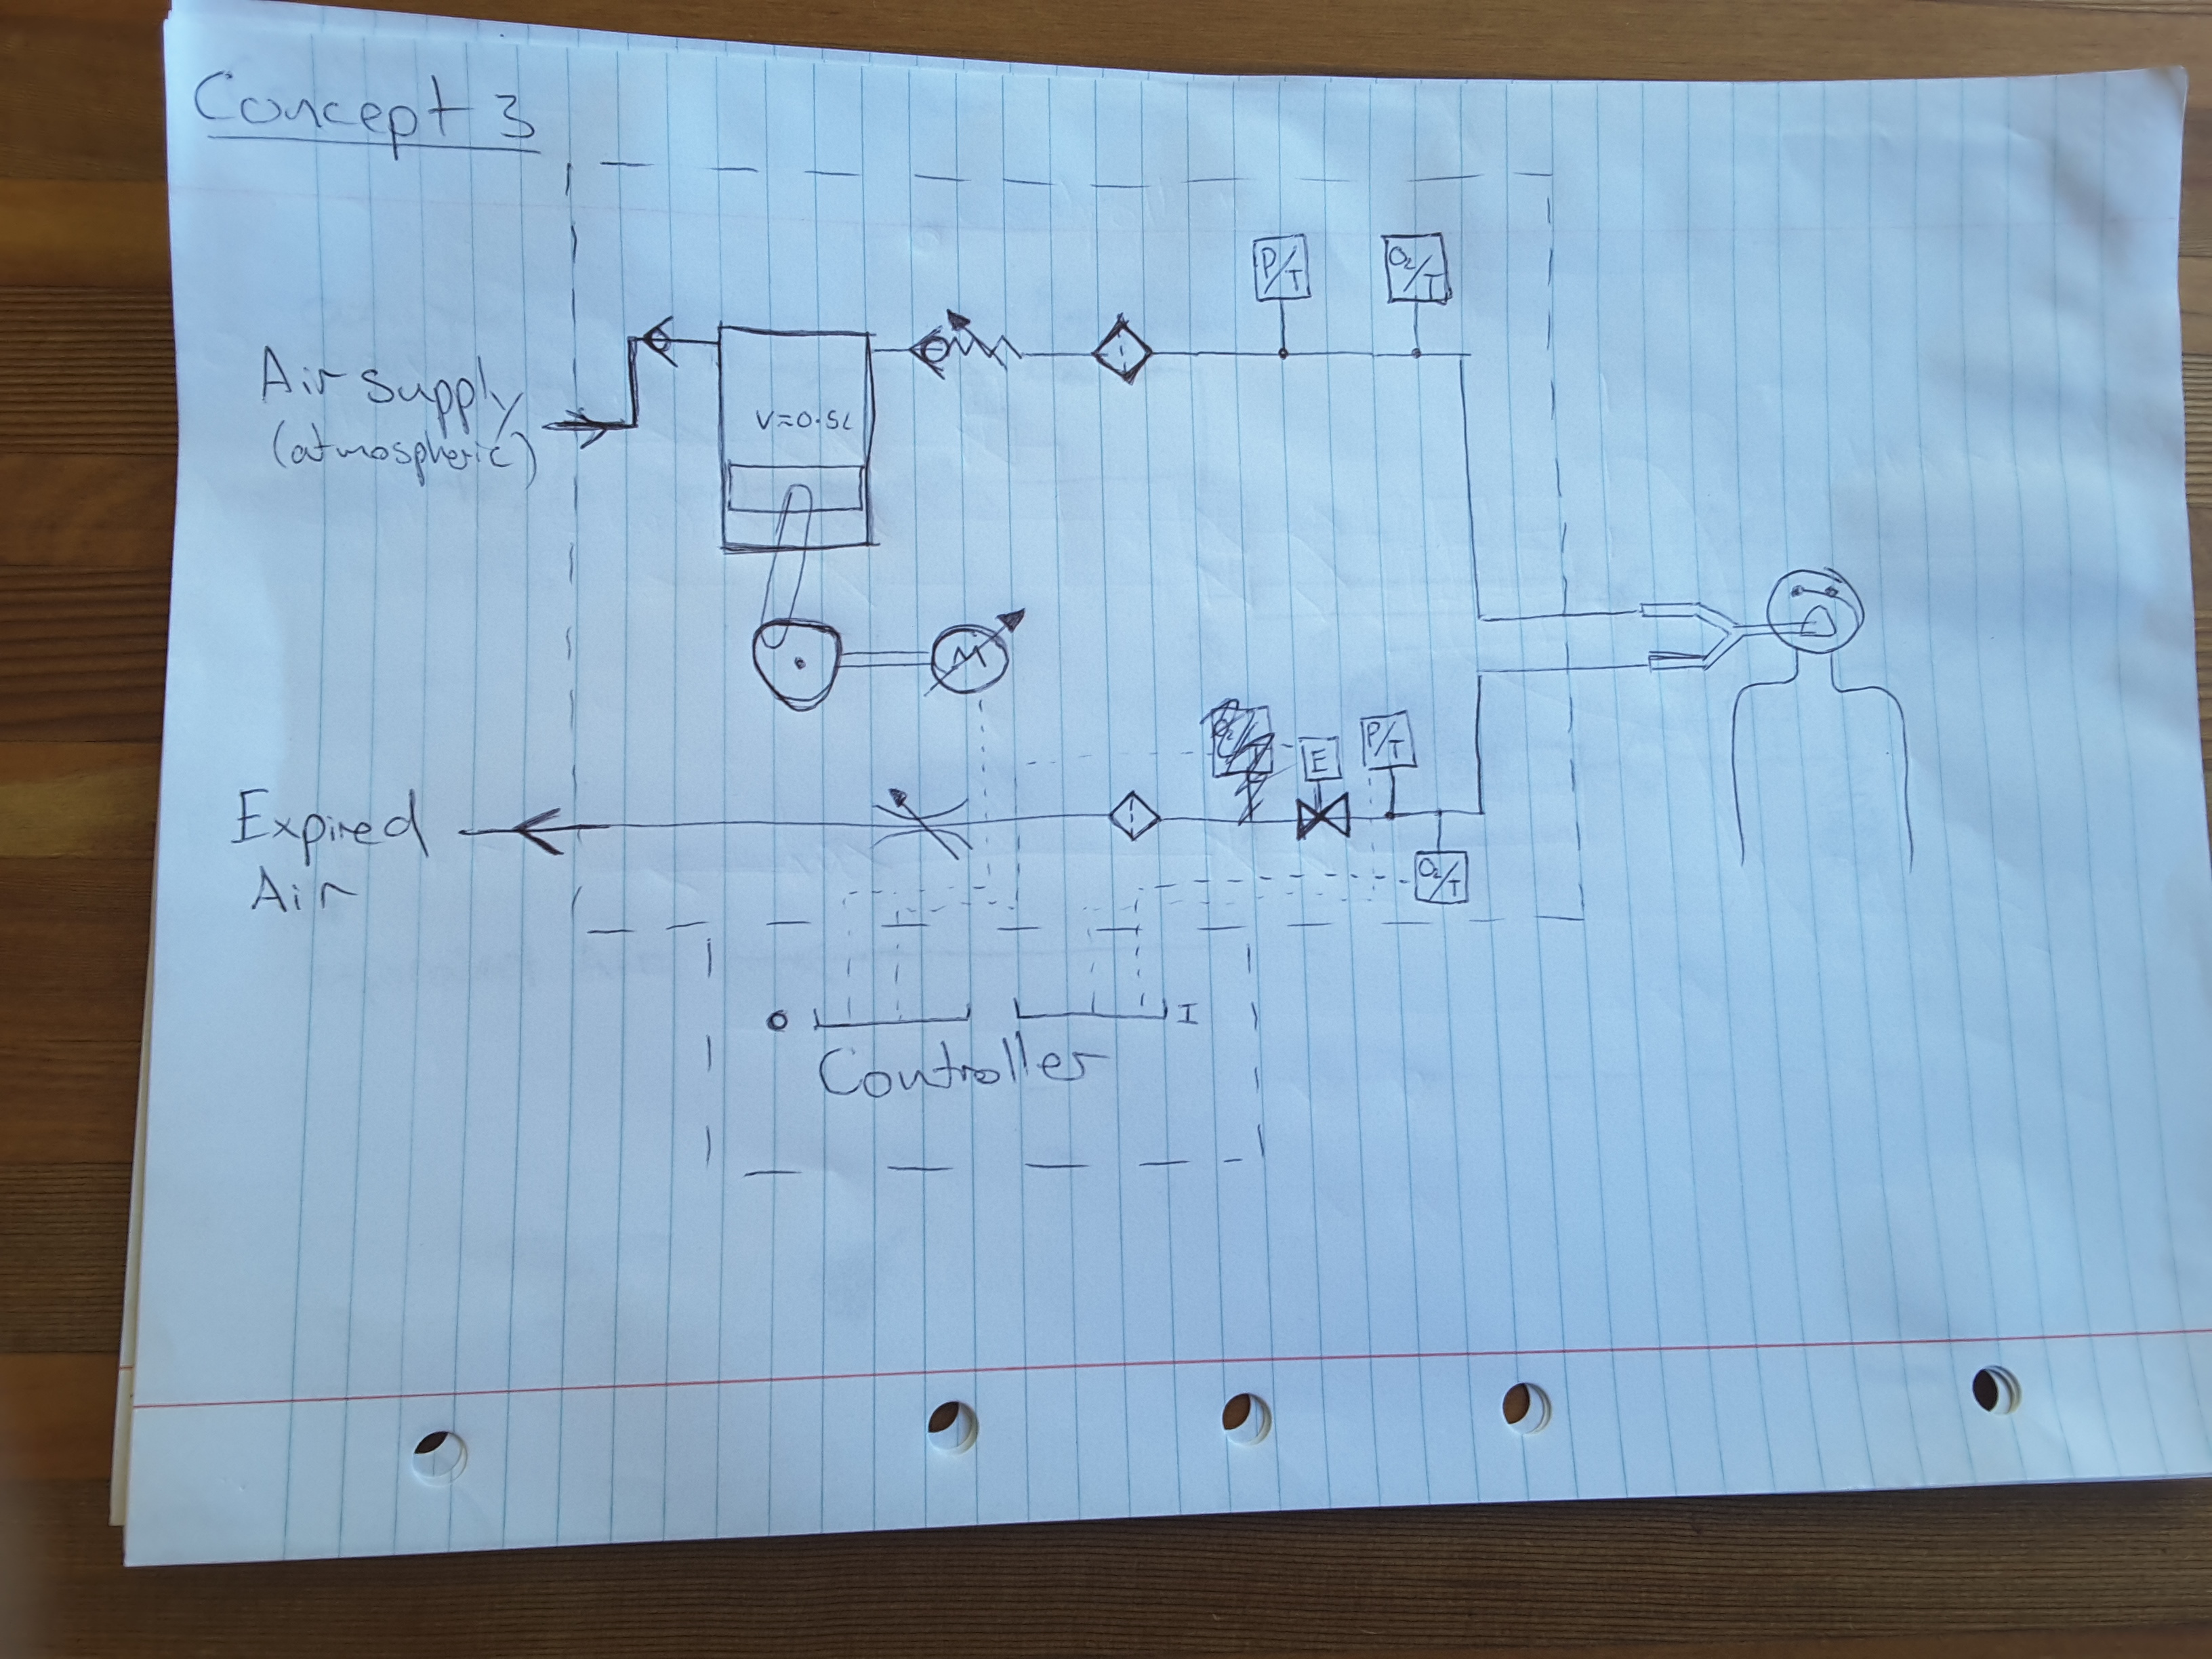 Concept 3
P/T
O₂/T
Air supply
(atmospheric)
V≈0.5L
M
E
P/T
Expired
Air
O₂/T
O
I
Controller